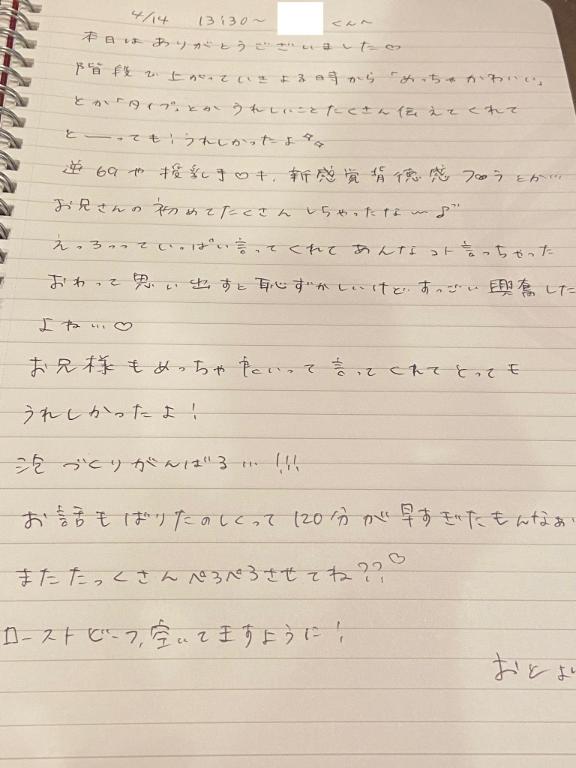 4/14 13:30〜 くんへ
本日はありがとうございました♡
階段で上がっていきよる時から「めっちゃかわいい」
とか「タイプ」とかうれしいことたくさん伝えてくれて
とーーっても!うれしかったよ
逆69や授乳手♡キ、新感覚背徳感プロうとか…
お兄さんの初めてたくさんしちゃったな〜♪
えっろっっていっぱい言ってくれてあんなコト言っちゃった
おわって思い出すと恥ずかしいけど、すっごい興奮した
よね…♡
お兄様もめっちゃ良いって言ってくれてとっても
うれしかったよ!
泡づくりがんばる…!!!
お話もばりたのしくって120分が早すぎたもんなぁ
またたっくさんぺろぺろさせてね??♡
ローストビーフ、空いてますように!
おとよ